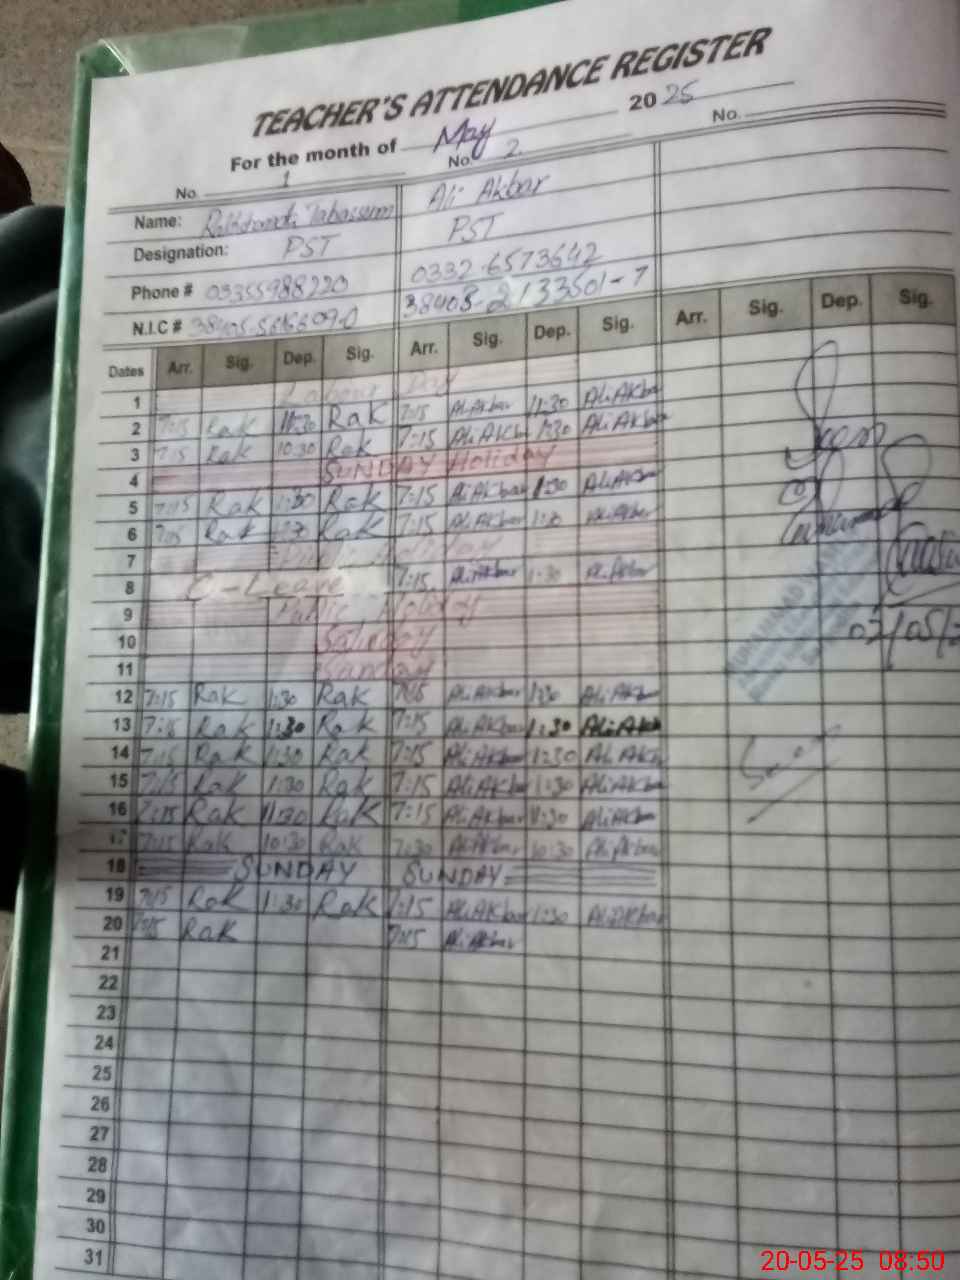 TEACHER'S ATTENDANCE REGISTER
For the month of May 2025
No. 1 No. 2. No.
Name: Tabassum Ali Akbar
Designation: PST PST
Phone # 03355988220 0332-6573642
N.I.C # 38403-2133501-7
Dates Arr. Sig. Dep. Sig. Arr. Sig. Dep. Sig. Arr. Sig. Dep. Sig.
1 Labour Day
2 7:15 Rak 11:30 Rak 7:15 Ali Akbar 11:30 Ali Akbar
3 7:15 Rak 10:30 Rak 7:15 Ali Akbar 1:30 Ali Akbar
4 SUNDAY Holiday
5 7:15 Rak 1:30 Rak 7:15 Ali Akbar 1:30 Ali Akbar
6 7:15 Rak 1:30 Rak 7:15 Ali Akbar 1:30 Ali Akbar
7 Public Holiday
8 C-Leave 7:15 Ali Akbar 1:30 Ali Akbar
9 Public Holiday
10 Saturday
11 Sunday
12 7:15 Rak 1:30 Rak 7:15 Ali Akbar 1:30 Ali Akbar
13 7:15 Rak 1:30 Rak 7:15 Ali Akbar 1:30 Ali Akbar
14 7:15 Rak 1:30 Rak 7:15 Ali Akbar 1:30 Ali Akbar
15 7:15 Rak 1:30 Rak 7:15 Ali Akbar 1:30 Ali Akbar
16 7:15 Rak 11:30 Rak 7:15 Ali Akbar 11:30 Ali Akbar
17 7:15 Rak 10:30 Rak 7:30 Ali Akbar 10:30 Ali Akbar
18 SUNDAY SUNDAY
19 7:15 Rak 1:30 Rak 7:15 Ali Akbar 1:30 Ali Akbar
20 7:15 Rak 7:15 Ali Akbar
21
22
23
24
25
26
27
28
29
30
31
20-05-25 08:50